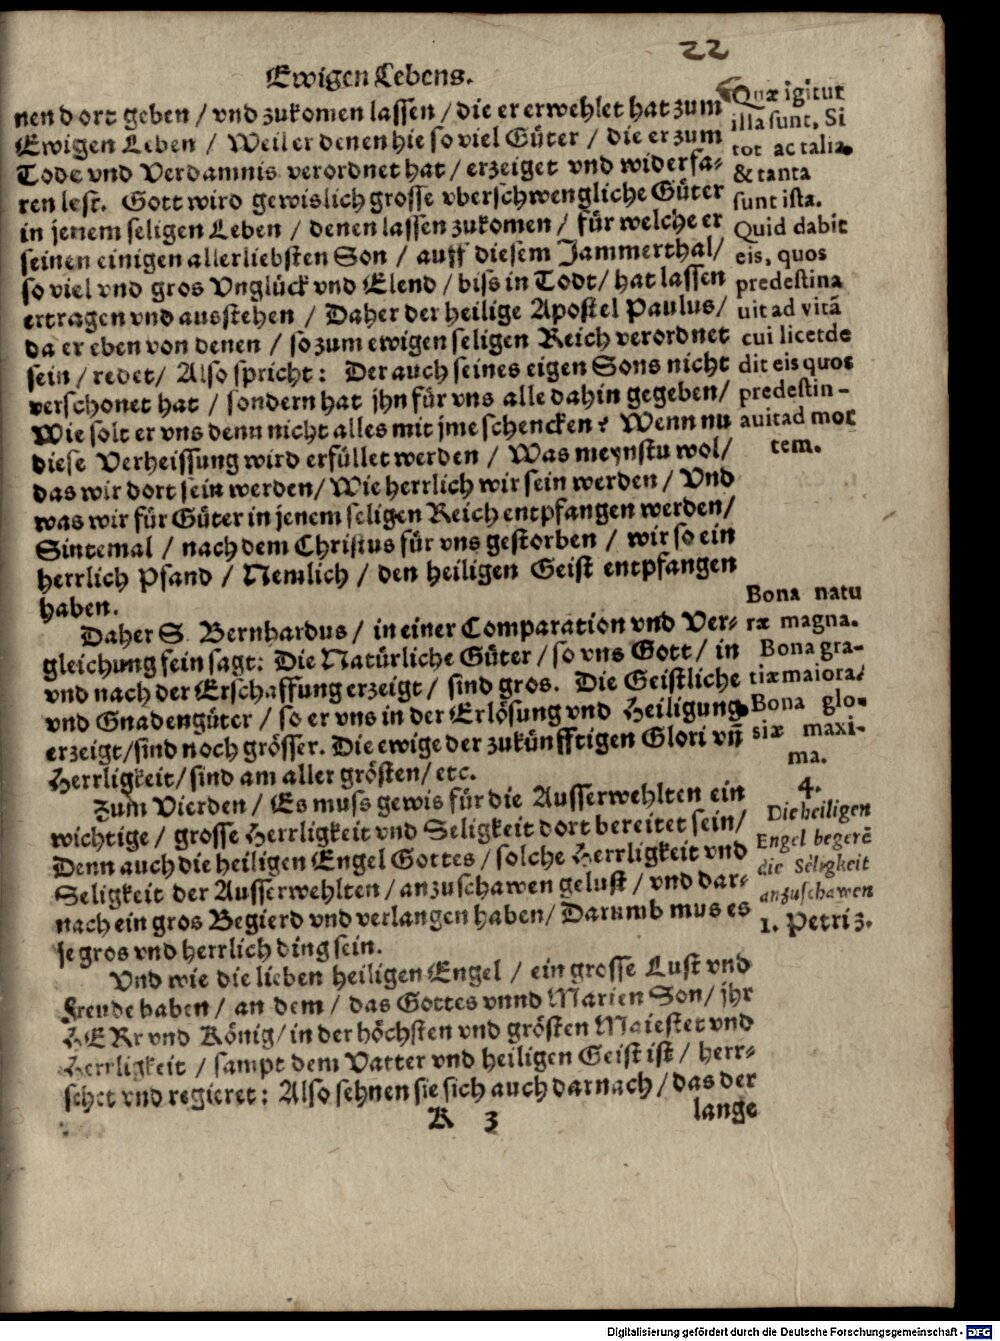 22
Ewigen Lebens.
nen dort geben / vnd zukomen lassen / die er erwehlet hat zum
Ewigen Leben / Weil er denen hie so viel Güter / die er zum
Tode vnd Verdamnis verordnet hat / erzeiget vnd widerfa-
ren lest. Gott wird gewislich grosse vberschwengliche Güter
in jenem seligen Leben / denen lassen zukomen / für welche er
seinen einigen allerliebsten Son / auff diesem Jammerthal /
so viel vnd gros Vnglück vnd Elend / biss in Todt / hat lassen
ertragen vnd ausstehen / Daher der heilige Apostel Paulus /
da er eben von denen / so zum ewigen seligen Reich verordnet
sein / redet / Also spricht: Der auch seines eigen Sons nicht
verschonet hat / sondern hat jhn für vns alle dahin gegeben /
Wie solt er vns denn nicht alles mit jme schencken? Wenn nu
diese Verheissung wird erfüllet werden / Was meynstu wol /
das wir dort sein werden / Wie herrlich wir sein werden / Vnd
was wir für Güter in jenem seligen Reich entpfangen werden /
Sintemal / nach dem Christus für vns gestorben / wir so ein
herrlich Pfand / Nemlich / den heiligen Geist entpfangen
haben.
Quæ igitur
illa sunt, Si
tot ac talia.
& tanta
sunt ista.
Quid dabit
eis, quos
predestina
uit ad vitã
cui licet de
dit eis quos
predestin-
auit ad mor
tem.
Daher S. Bernhardus / in einer Comparation vnd Ver-
gleichung fein sagt: Die Natürliche Güter / so vns Gott / in
vnd nach der Erschaffung erzeigt / sind gros. Die Geistliche
vnd Gnadengüter / so er vns in der Erlösung vnd Heiligung
erzeigt / sind noch grösser. Die ewige der zukünfftigen Glori vñ
Herrligkeit / sind am aller grösten / etc.
Bona natu
ræ magna.
Bona gra-
tiæ maiora.
Bona glo-
riæ maxi-
ma.
Zum Vierden / Es muss gewis für die Ausserwehlten ein
wichtige / grosse Herrligkeit vnd Seligkeit dort bereitet sein /
Denn auch die heiligen Engel Gottes / solche Herrligkeit vnd
Seligkeit der Ausserwehlten / anzuschawen gelust / vnd dar-
nach ein gros Begierd vnd verlangen haben / Darumb mus es
je gros vnd herrlich ding sein.
4.
Die heiligen
Engel begerẽ
die Seligkeit
anzuschawen
1. Petri 3.
Vnd wie die lieben heiligen Engel / ein grosse Lust vnd
Freude haben / an dem / das Gottes vnnd Marien Son / jhr
HERr vnd König / in der höchsten vnd grösten Maiestet vnd
Herrligkeit / sampt dem Vatter vnd heiligen Geist ist / herr-
schet vnd regieret: Also sehnen sie sich auch darnach / das der
K 3
lange
Digitalisierung gefördert durch die Deutsche Forschungsgemeinschaft - DFG